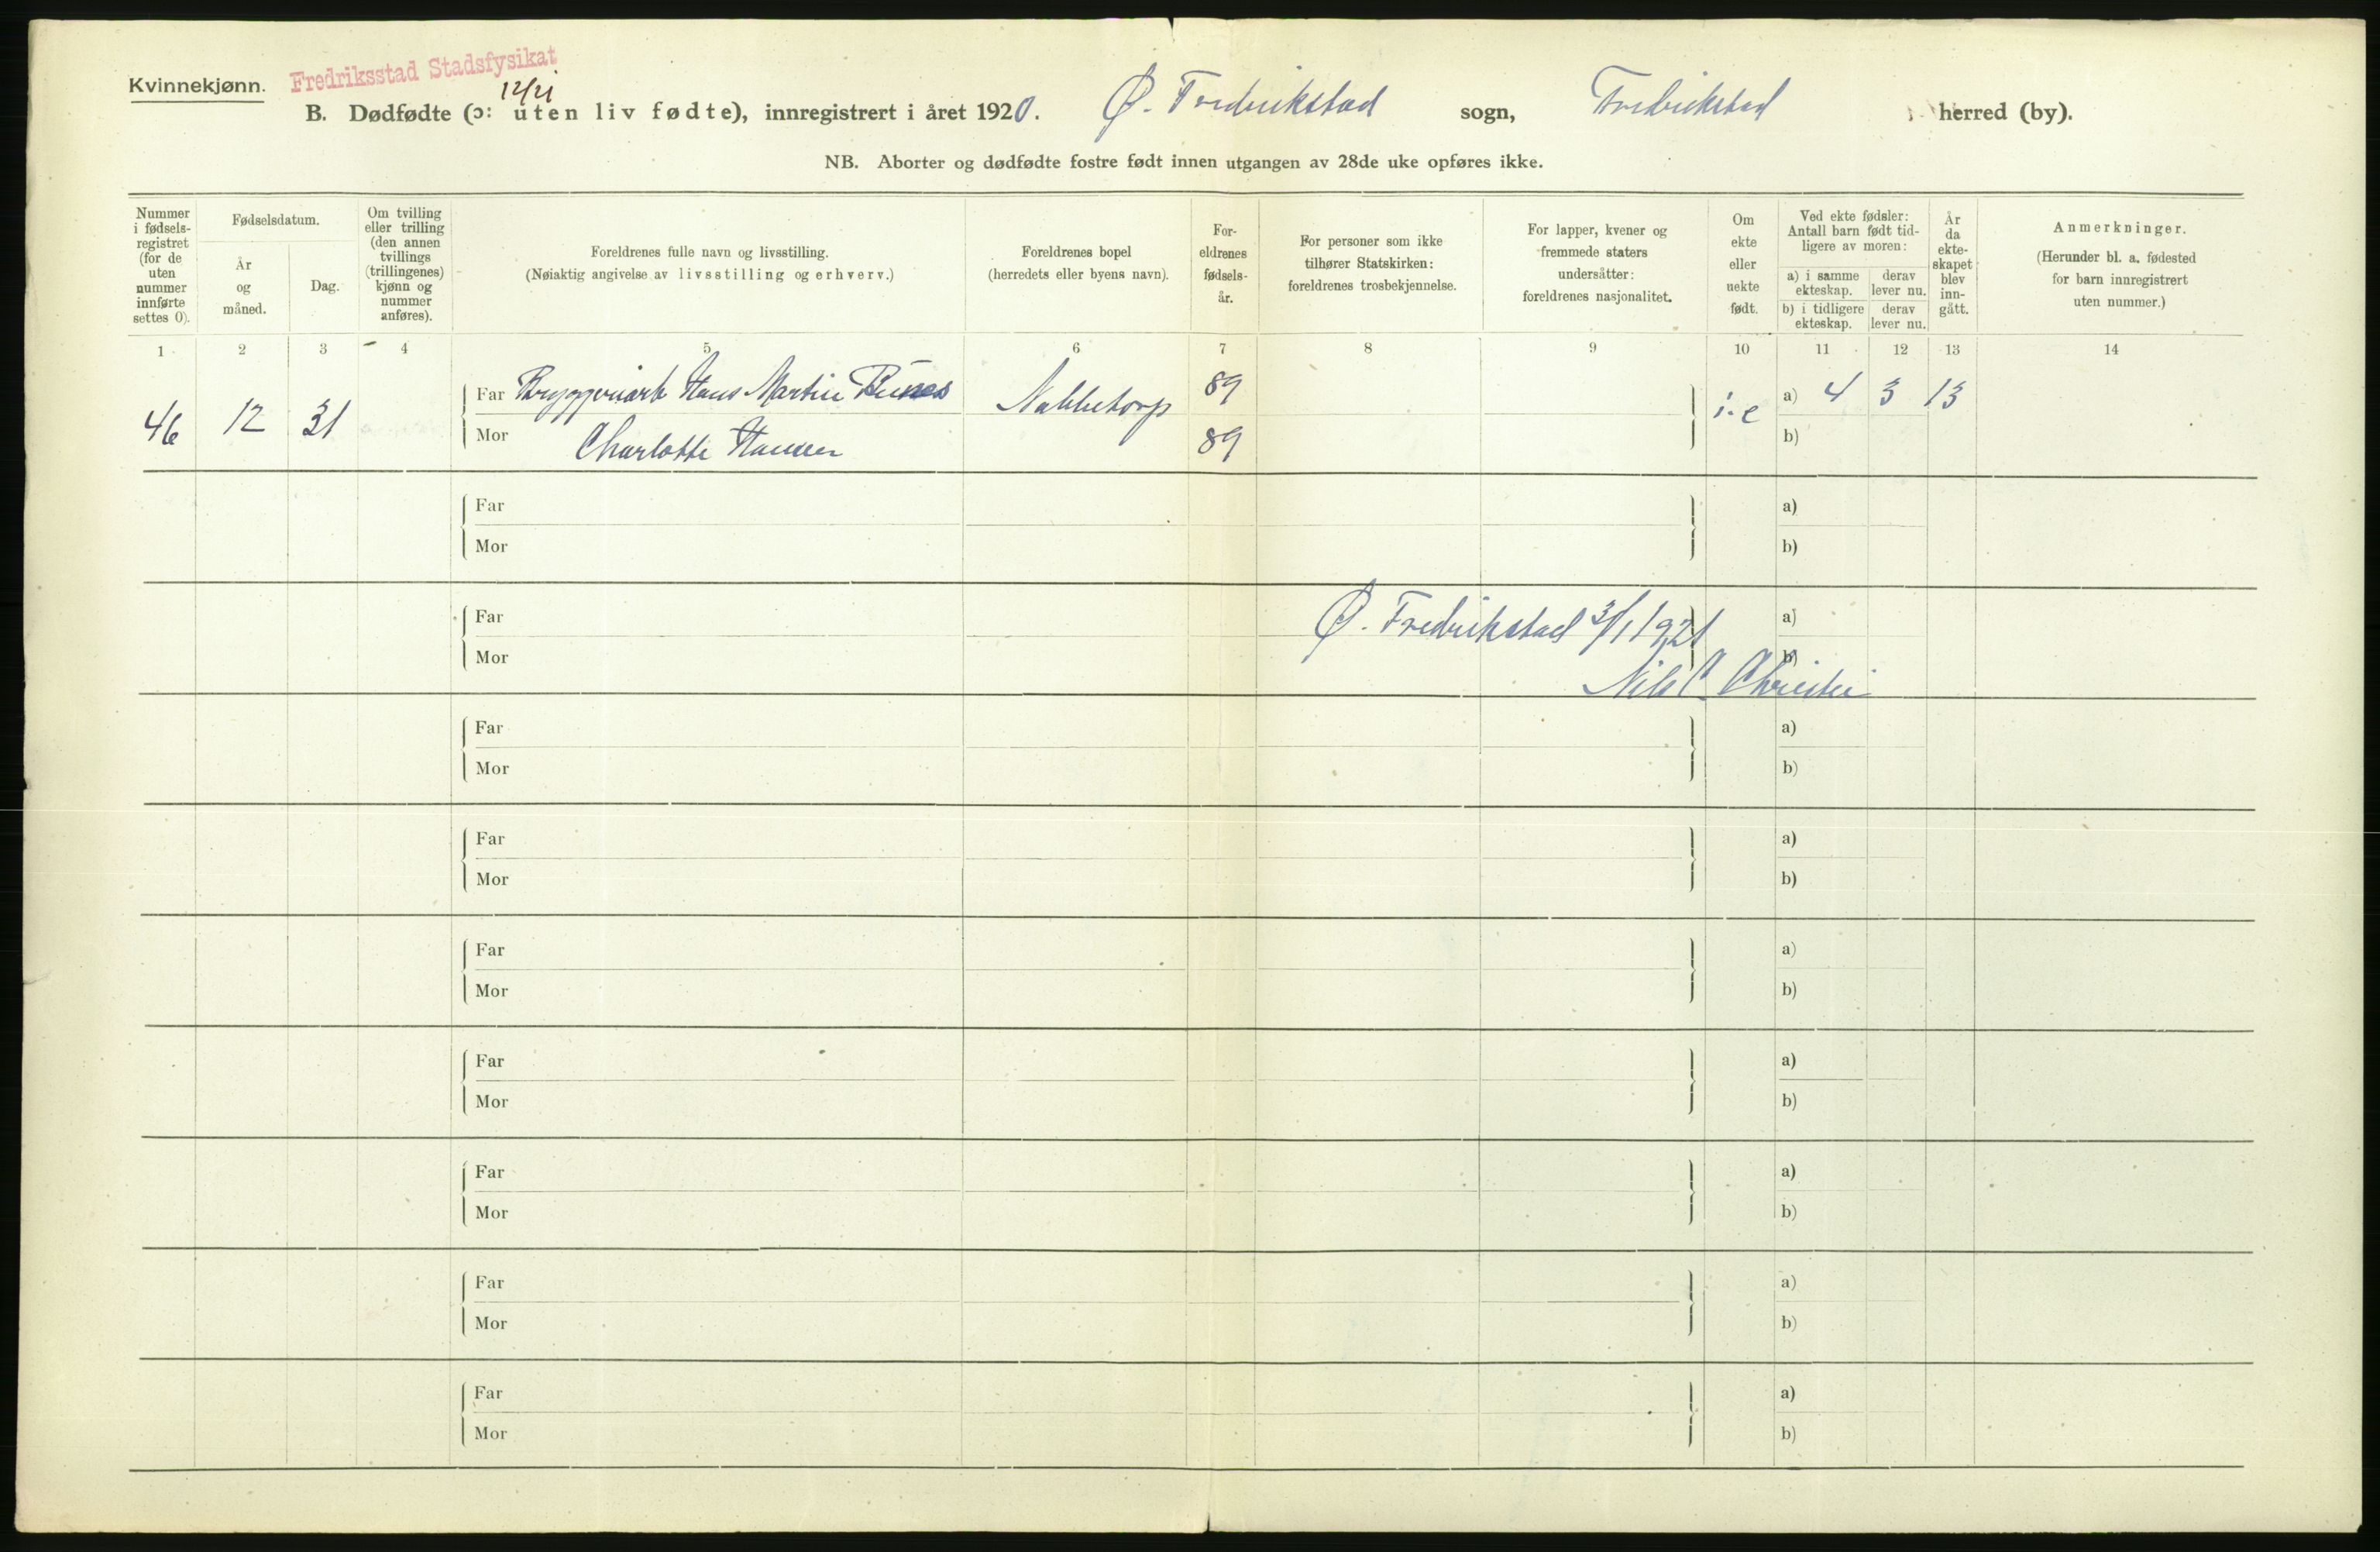 Kvinnekjønn. Fredriksstad Stadsfysikat
12/21
B. Dødfødte (ɔ: uten liv fødte), innregistrert i året 1920. Ø. Fredrikstad sogn, Fredrikstad herred (by).
NB. Aborter og dødfødte fostre født innen utgangen av 28de uke opføres ikke.
Nummer i fødsels-registret (for de uten nummer innførte settes 0).
Fødselsdatum.
År og måned.
Dag.
Om tvilling eller trilling (den annen tvillings (trillingenes) kjønn og nummer anføres).
Foreldrenes fulle navn og livsstilling.
(Nøiaktig angivelse av livsstilling og erhverv.)
Foreldrenes bopel
(herredets eller byens navn).
For-eldrenes fødsels-år.
For personer som ikke tilhører Statskirken: foreldrenes trosbekjennelse.
For lapper, kvener og fremmede staters undersåtter: foreldrenes nasjonalitet.
Om ekte eller uekte født.
Ved ekte fødsler: Antall barn født tid-ligere av moren:
a) i samme ekteskap. derav lever nu.
b) i tidligere ekteskap. derav lever nu.
År da ekte-skapet blev inn-gått.
Anmerkninger.
(Herunder bl. a. fødested for barn innregistrert uten nummer.)
1 2 3 4 5 6 7 8 9 10 11 12 13 14
46 12 31 Far Bryggeriarb Hans Martin Nabbetorp 89 i.e a) 4 3 13
Mor Charlotte Hansen 89 b)
Far a)
Mor b)
Far Ø. Fredrikstad 3/1 1921 a)
Mor b)
Nils C Christie
Far a)
Mor b)
Far a)
Mor b)
Far a)
Mor b)
Far a)
Mor b)
Far a)
Mor b)
Far a)
Mor b)
Far a)
Mor b)